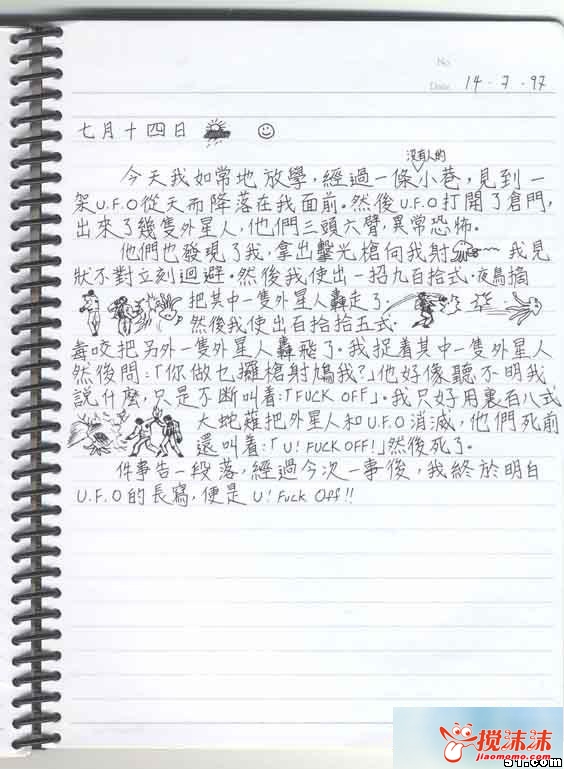 No.
Date 14·7·97
七月十四日
今天我如常地放學，經過一條沒有人的小巷，見到一
架U.F.O從天而降落在我面前。然後U.F.O打開了倉門，
出來了幾隻外星人，他們三頭六臂，異常恐怖。
他們也發現了我，拿出擊光槍向我射 我見
狀不對立刻迴避。然後我使出一招九百拾式·夜鳥摘
把其中一隻外星人轟走了。
然後我使出百拾拾五式·
毒咬把另外一隻外星人轟飛了。我捉着其中一隻外星人
然後問：「你做乜攞槍射鳩我？」他好像聽不明我
說什麼，只是不斷叫着：「FUCK OFF」。我只好用裏百八式
大蛇薙把外星人和U.F.O消滅，他們死前
還叫着：「U! FUCK OFF!」然後死了。
件事告一段落，經過今次一事後，我終於明白
U.F.O的長寫，便是U! Fuck Off!!
搅沫沫
jiaomomo.com
51.com